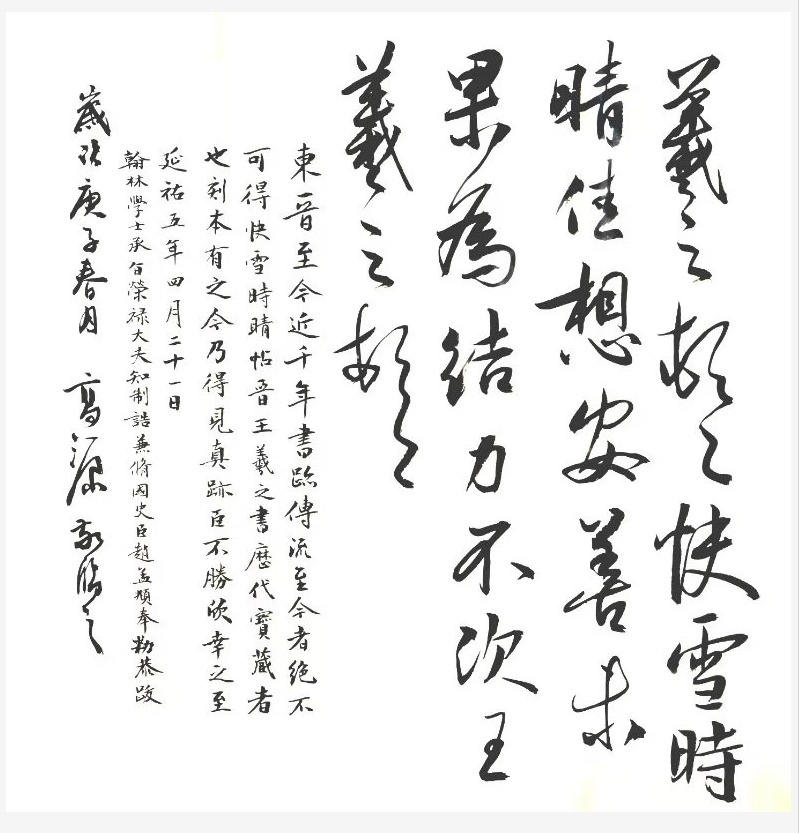 羲之頓首快雪時
晴佳想安善未
果為結力不次王
羲之頓首
東晉至今近千年書跡傳流至今者絕不
可得快雪時晴帖晉王羲之書歷代寶藏者
也刻本有之今乃得見真跡臣不勝欣幸之至
延祐五年四月二十一日
翰林學士承旨榮祿大夫知制誥兼脩國史臣趙孟頫奉勅恭跋
歲次庚子春月 高源敬臨之